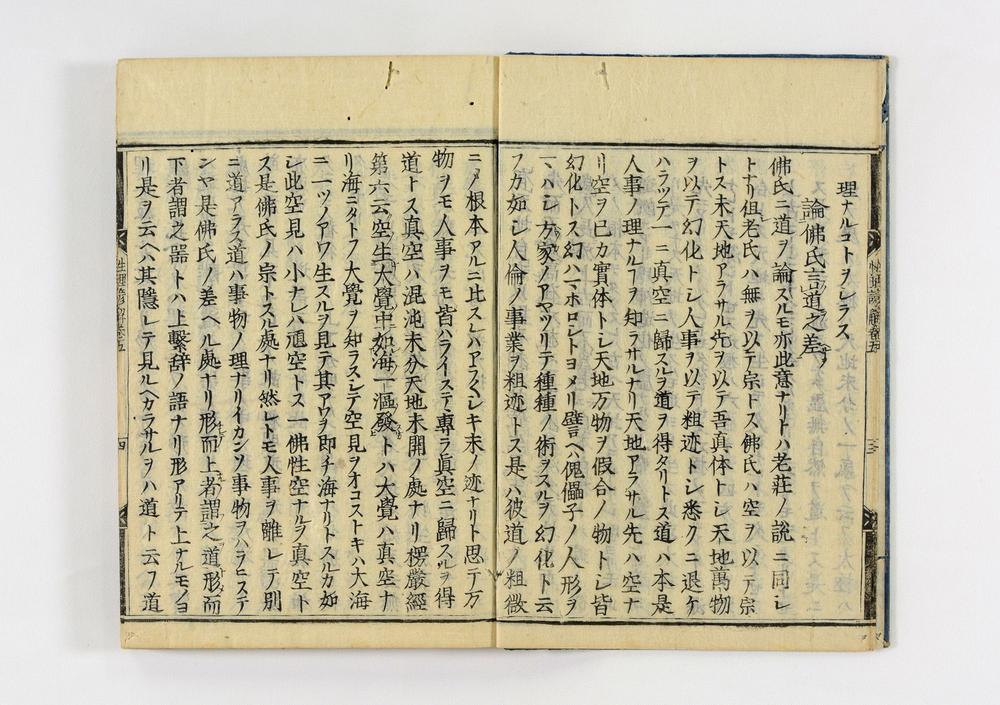 理ナルコトヲシラス
論佛氏言道之差
佛氏ニ道ヲ論スルモ亦此意ナリトハ老莊ノ説ニ同シ
トナリ伹老氏ハ無ヲ以テ宗トス佛氏ハ空ヲ以テ宗
トス未天地アラサル先ヲ以テ吾真体トシ天地萬物
ヲ以テ幻化トシ人事ヲ以テ粗迹トシ悉クニ退ケ
ハラツテ一ニ真空ニ歸スルヲ道ヲ得タリトス道ハ本是
人事ノ理ナルヿヲ知ラサルナリ天地アラサル先ハ空ナ
リ空ヲ已カ實体トシ天地万物ヲ假合ノ物トシ皆
幻化トス幻ハマホロシトヨメリ譬ヘハ傀儡子ノ人形ヲ
マハシ方家ノアヤツリテ種種ノ術ヲスルヲ幻化ト云
フカ如シ人倫ノ事業ヲ粗迹トス是ハ彼道ノ粗微
ニメ根本アルニ比スレハアラクシキ末ノ迹ナリト思テ万
物ヲモ人事ヲモ皆ハライステ專ラ真空ニ歸スルヲ得
道トス真空ハ混沌未分天地未開ノ處ナリ楞嚴經
第六云空生大覺中如海一漚發トハ大覺ハ真空ナ
リ海ニタトフ大覺ヲ知ラスレテ空見ヲオコストキハ大海
ニ一ツノアワ生スルヲ見テ其アワヲ即チ海ナリトスルカ如
シ此空見ハ小ナレハ頑空トス一佛性空ナルヲ真空ト
ス是佛氏ノ宗トスル處ナリ然レトモ人事ヲ離レテ別
ニ道アラス道ハ事物ノ理ナリイカンソ事物ヲハラヒステ
ンヤ是佛氏ノ差ヘル處ナリ形而上者謂之道形而
下者謂之器トハ上繫辞ノ語ナリ形アリテ上ナルモノヨ
リ是ヲ云ヘハ其隠レテ見ルヘカラサルヲハ道ト云フ道
性理諺解卷五
三
性理諺解卷五
四